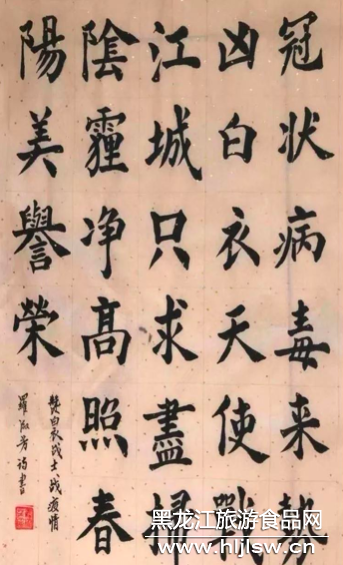 冠状病毒来势
凶白衣天使战
江城只求盡掃
陰霾净高照春
陽美譽榮
赞白衣战士战疫情
羅淑芳诗書
黑龙江旅游食品网
www.hljlsw.cn